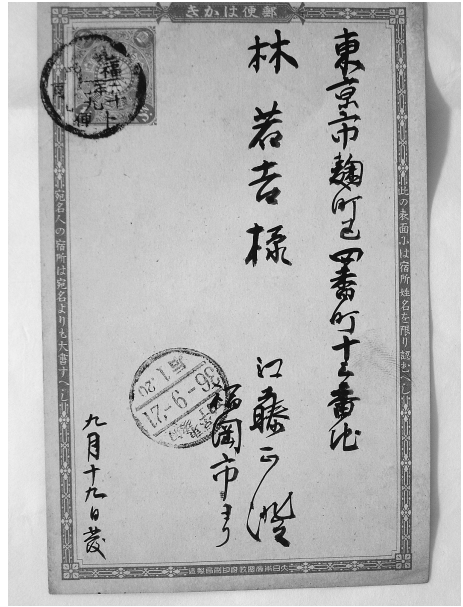 郵便はかき
此の表面には宿所姓名を限り認むへし
東京市麹町区四番町十三番地
林若吉様
江藤正澄
福岡市より
九月十九日發
宛名人の宿所は宛名よりも大書すへし
36-9-21
大日本帝國政府印刷局製造